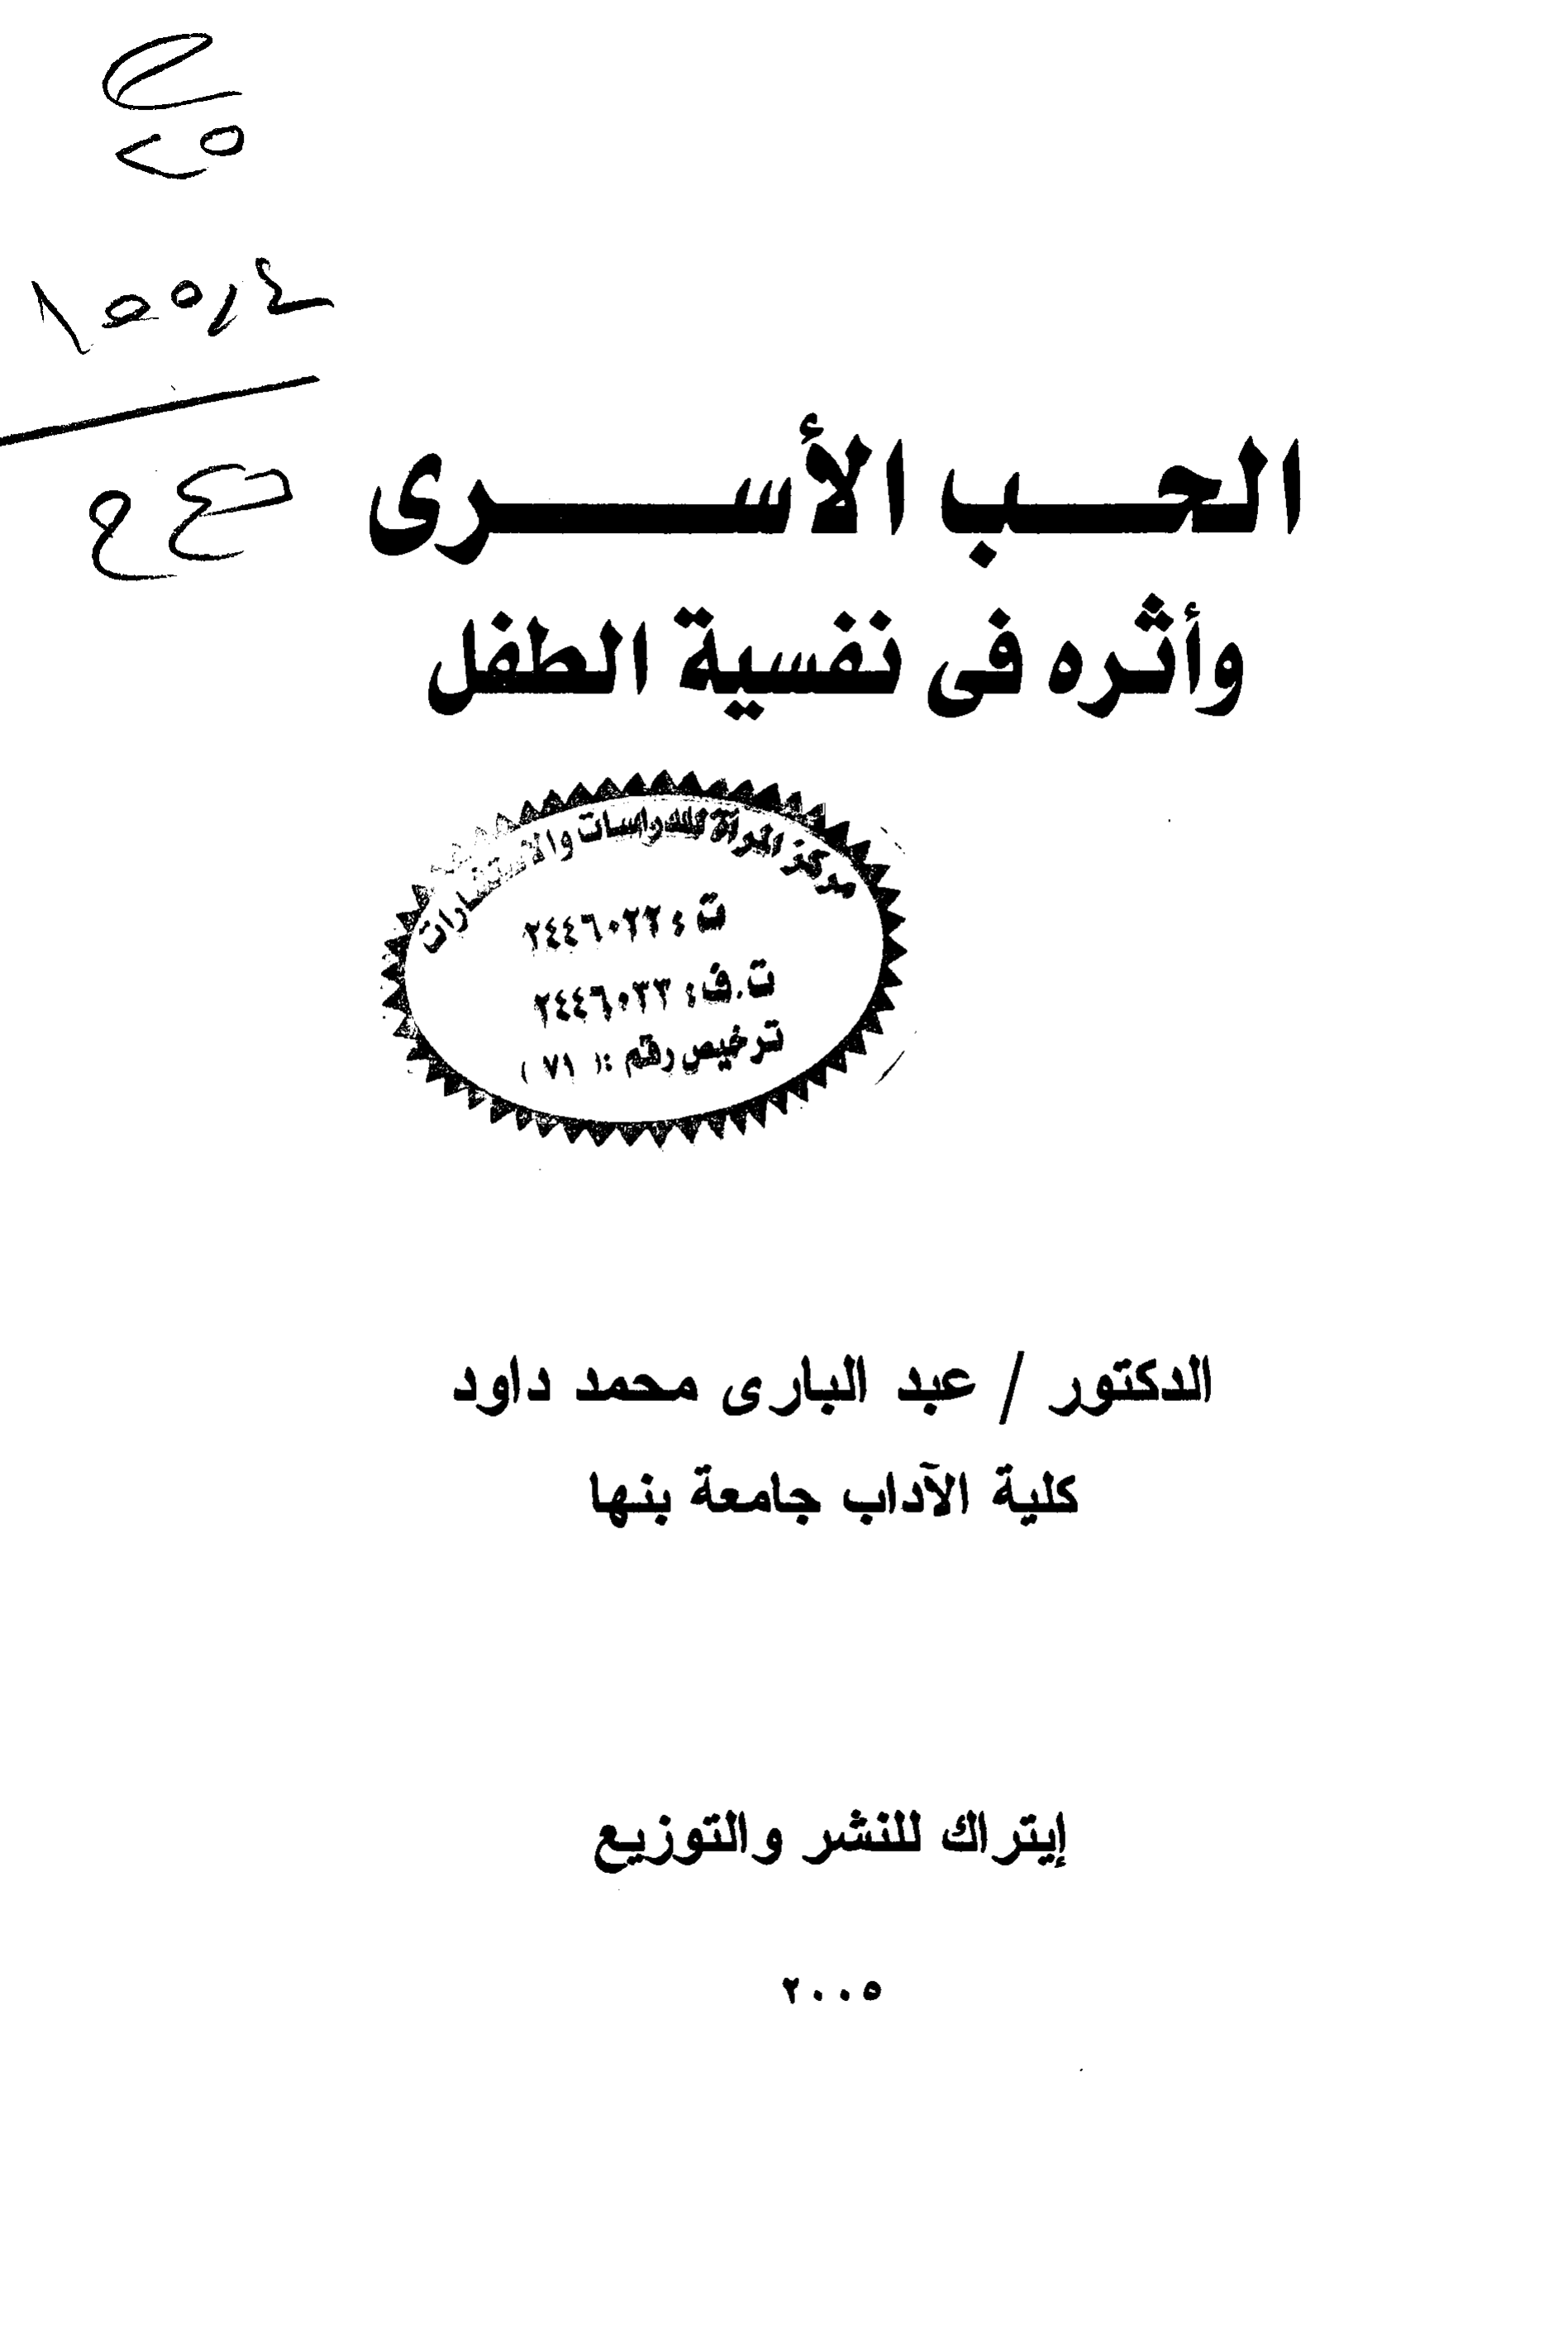 ١٥٥,٤
الحب الأسرى
وأثره فى نفسية الطفل
مركز المرأة للدراسات والاستشارات
ت : ٢٤٤٦٠٢٢
ت.ف : ٢٤٤٦٠٣٣
ترخيص رقم : ( ٧١ )
الدكتور / عبد البارى محمد داود
كلية الآداب جامعة بنها
إيتراك للنشر والتوزيع
٢٠٠٥